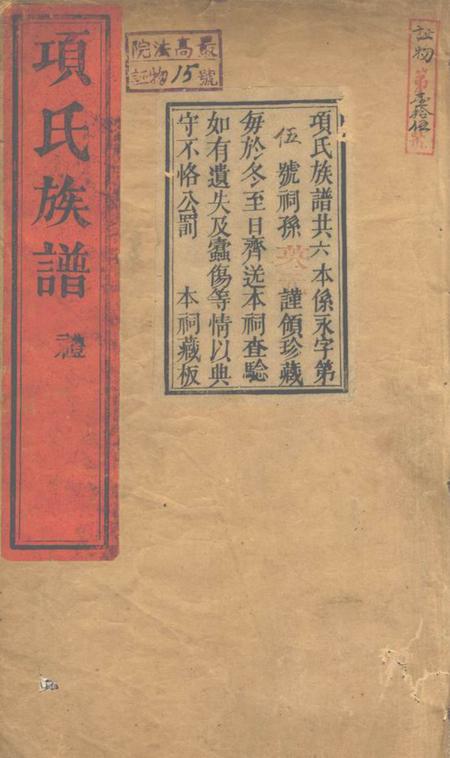 証物
第壹拾伍號
最高法院
証物15號
項氏族譜共六本係永字第
伍號祠孫 謹領珍藏
每於冬至日齊送本祠查驗
如有遺失及蠹傷等情以典
守不恪公罰 本祠藏板
項氏族譜 禮